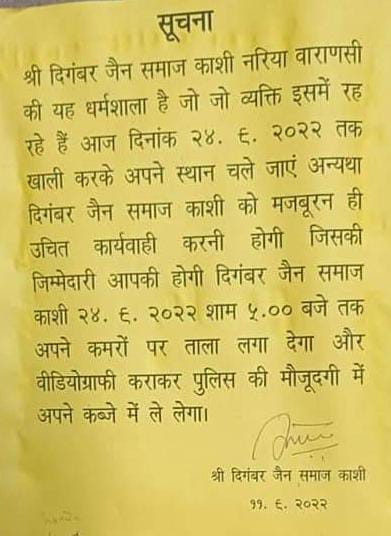 सूचना
श्री दिगंबर जैन समाज काशी नरिया वाराणसी
की यह धर्मशाला है जो जो व्यक्ति इसमें रह
रहे हैं आज दिनांक २४. ६. २०२२ तक
खाली करके अपने स्थान चले जाएं अन्यथा
दिगंबर जैन समाज काशी को मजबूरन ही
उचित कार्यवाही करनी होगी जिसकी
जिम्मेदारी आपकी होगी दिगंबर जैन समाज
काशी २४. ६. २०२२ शाम ५.०० बजे तक
अपने कमरों पर ताला लगा देगा और
वीडियोग्राफी कराकर पुलिस की मौजूदगी में
अपने कब्जे में ले लेगा।
श्री दिगंबर जैन समाज काशी
११. ६. २०२२